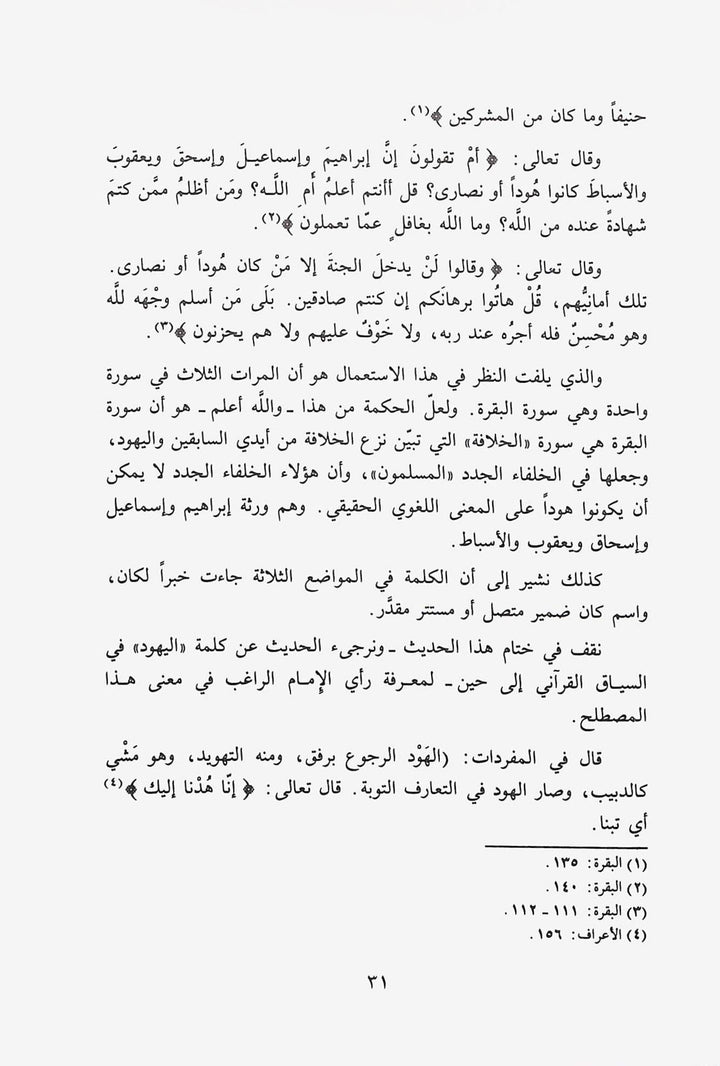 حنيفاً وما كان من المشركين ﴾(١).
وقال تعالى: ﴿ أمْ تقولونَ إنَّ إبراهيمَ وإسماعيـلَ وإسحقَ ويعقوبَ
والأسباطَ كانوا هُوداً أو نصارى؟ قل أأنتم أعلمُ أَمِ اللَّـه؟ ومَن أظلمُ ممَّن كتمَ
شهادةً عنده من اللَّه؟ وما اللَّه بغافلٍ عمّا تعملون ﴾(٢).
وقال تعالى: ﴿ وقالوا لَنْ يدخلَ الجنةَ إلا مَنْ كان هُوداً أو نصارى.
تلك أمانِيُّهم، قُلْ هاتُوا برهانَكم إن كنتم صادقين. بَلَى مَن أسلم وجْهَه للَّه
وهو مُحْسِنٌ فله أجرُه عند ربه، ولا خَوْفٌ عليهم ولا هم يحزنون ﴾(٣).
والذي يلفت النظر في هذا الاستعمال هو أن المرات الثلاث في سورة
واحدة وهي سورة البقرة. ولعلّ الحكمة من هذا ـ واللَّه أعلم ـ هو أن سورة
البقرة هي سورة «الخلافة» التي تبيّن نزع الخلافة من أيدي السابقين واليهود،
وجعلها في الخلفاء الجدد «المسلمون»، وأن هؤلاء الخلفاء الجدد لا يمكن
أن يكونوا هوداً على المعنى اللغوي الحقيقي. وهم ورثة إبراهيم وإسماعيل
وإسحاق ويعقوب والأسباط.
كذلك نشير إلى أن الكلمة في المواضع الثلاثة جاءت خبراً لكان،
واسم كان ضمير متصل أو مستتر مقدَّر.
نقف في ختام هذا الحديث ـ ونرجىء الحديث عن كلمة «اليهود» في
السيـاق القرآني إلى حين ـ لمعـرفة رأي الإمـام الراغب في معنى هـذا
المصطلح.
قال في المفردات: (الهَوْد الرجوع برفق، ومنه التهويد، وهو مَشْي
كالدبيب، وصار الهود في التعارف التوبة. قال تعالى: ﴿ إنّا هُدْنا إليك ﴾(٤)
أي تبنا.
(١) البقرة: ١٣٥.
(٢) البقرة: ١٤٠.
(٣) البقرة: ١١١ ـ ١١٢.
(٤) الأعراف: ١٥٦.
٣١